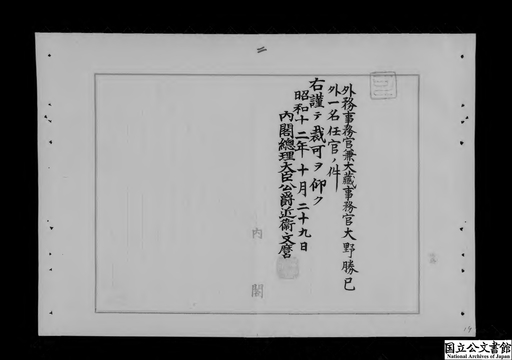 外務事務官兼大藏事務官大野勝巳
外一名任官ノ件
右謹テ裁可ヲ仰ク
昭和十二年十月二十九日
內閣總理大臣公爵近衞文麿
內閣
国立公文書館
National Archives of Japan